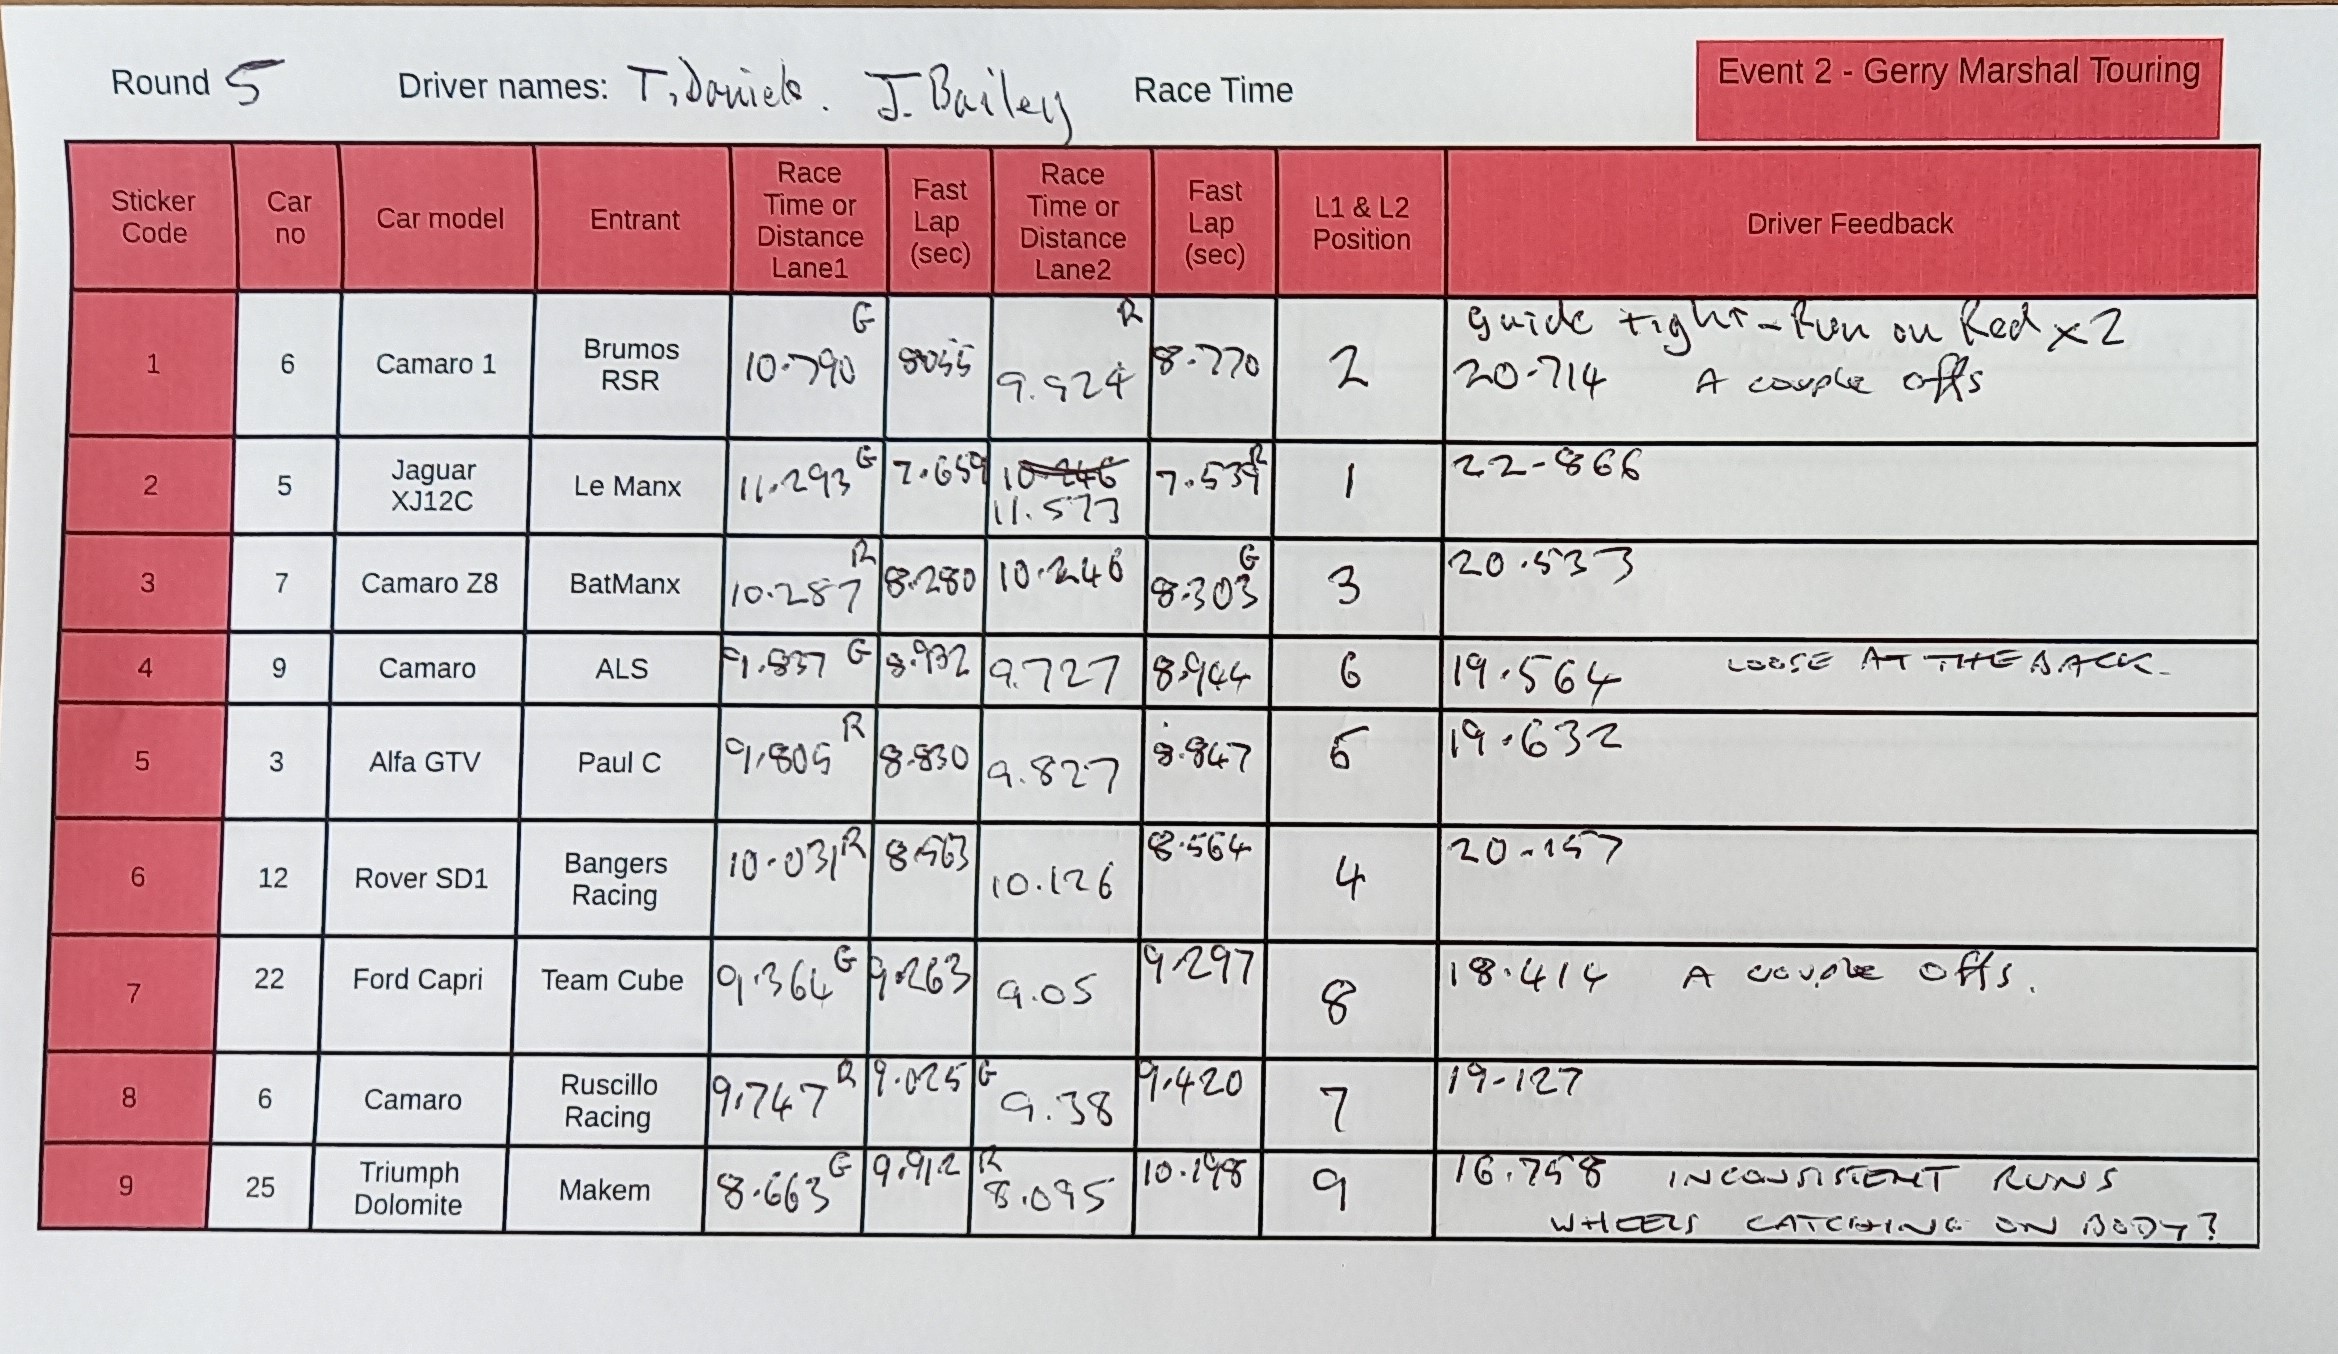 Round 5 Driver names: T. Daniels. J. Bailey Race Time
Event 2 - Gerry Marshal Touring
Sticker Code
Car no
Car model
Entrant
Race Time or Distance Lane1
Fast Lap (sec)
Race Time or Distance Lane2
Fast Lap (sec)
L1 & L2 Position
Driver Feedback
1 6 Camaro 1 Brumos RSR 10.790 G 8055 9.924 R 8.770 2 guide tight - Run on Red x 2
20.714 A couple offs
2 5 Jaguar XJ12C Le Manx 11.293 G 7.659 10.246 11.573 7.539 R 1 22-866
3 7 Camaro Z8 BatManx 10.287 R 8.280 10.246 8.303 G 3 20.533
4 9 Camaro ALS 9.837 G 8.932 9.727 8.944 6 19.564 LOOSE AT THE BACK.
5 3 Alfa GTV Paul C 9.805 R 8.830 9.827 8.847 5 19.632
6 12 Rover SD1 Bangers Racing 10.031 R 8.563 10.126 8.564 4 20-157
7 22 Ford Capri Team Cube 9.364 G 9.263 9.05 9.297 8 18.414 A couple offs.
8 6 Camaro Ruscillo Racing 9.747 R 9.025 G 9.38 9.420 7 19-127
9 25 Triumph Dolomite Makem 8.663 G 9.912 R 8.095 10.198 9 16.758 INCONSISTENT RUNS
WHEELS CATCHING ON BODY?